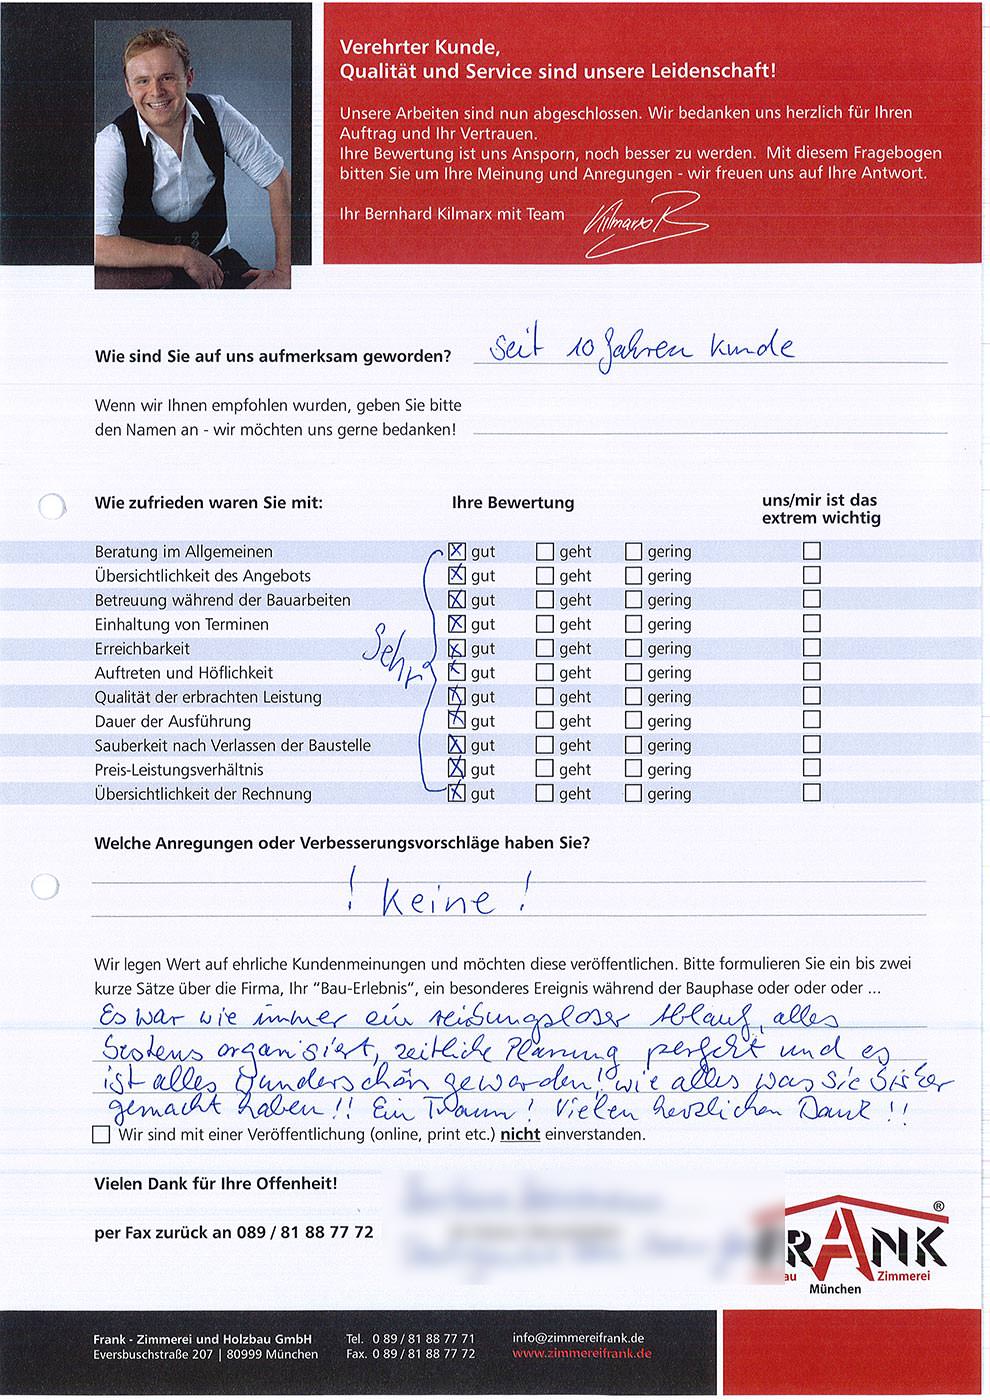 Verehrter Kunde,
Qualität und Service sind unsere Leidenschaft!
Unsere Arbeiten sind nun abgeschlossen. Wir bedanken uns herzlich für Ihren
Auftrag und Ihr Vertrauen.
Ihre Bewertung ist uns Ansporn, noch besser zu werden. Mit diesem Fragebogen
bitten Sie um Ihre Meinung und Anregungen - wir freuen uns auf Ihre Antwort.
Ihr Bernhard Kilmarx mit Team Kilmarx B
Wie sind Sie auf uns aufmerksam geworden? seit 10 Jahren Kunde
Wenn wir Ihnen empfohlen wurden, geben Sie bitte
den Namen an - wir möchten uns gerne bedanken!
Wie zufrieden waren Sie mit: Ihre Bewertung uns/mir ist das
extrem wichtig
Beratung im Allgemeinen gut geht gering
Übersichtlichkeit des Angebots gut geht gering
Betreuung während der Bauarbeiten gut geht gering
Einhaltung von Terminen gut geht gering
Erreichbarkeit gut geht gering
Sehr
Auftreten und Höflichkeit gut geht gering
Qualität der erbrachten Leistung gut geht gering
Dauer der Ausführung gut geht gering
Sauberkeit nach Verlassen der Baustelle gut geht gering
Preis-Leistungsverhältnis gut geht gering
Übersichtlichkeit der Rechnung gut geht gering
Welche Anregungen oder Verbesserungsvorschläge haben Sie?
! Keine !
Wir legen Wert auf ehrliche Kundenmeinungen und möchten diese veröffentlichen. Bitte formulieren Sie ein bis zwei
kurze Sätze über die Firma, Ihr "Bau-Erlebnis", ein besonderes Ereignis während der Bauphase oder oder oder ...
Es war wie immer ein reibungsloser Ablauf, alles
bestens organisiert, zeitliche Planung perfekt und es
ist alles wunderschön geworden! wie alles was Sie bisher
gemacht haben!! Ein Traum! Vielen herzlichen Dank!!
Wir sind mit einer Veröffentlichung (online, print etc.) nicht einverstanden.
Vielen Dank für Ihre Offenheit!
per Fax zurück an 089 / 81 88 77 72
FRANK ®
au Zimmerei
München
Frank - Zimmerei und Holzbau GmbH Tel. 0 89 / 81 88 77 71 info@zimmereifrank.de
Eversbuschstraße 207 | 80999 München Fax. 0 89 / 81 88 77 72 www.zimmereifrank.de